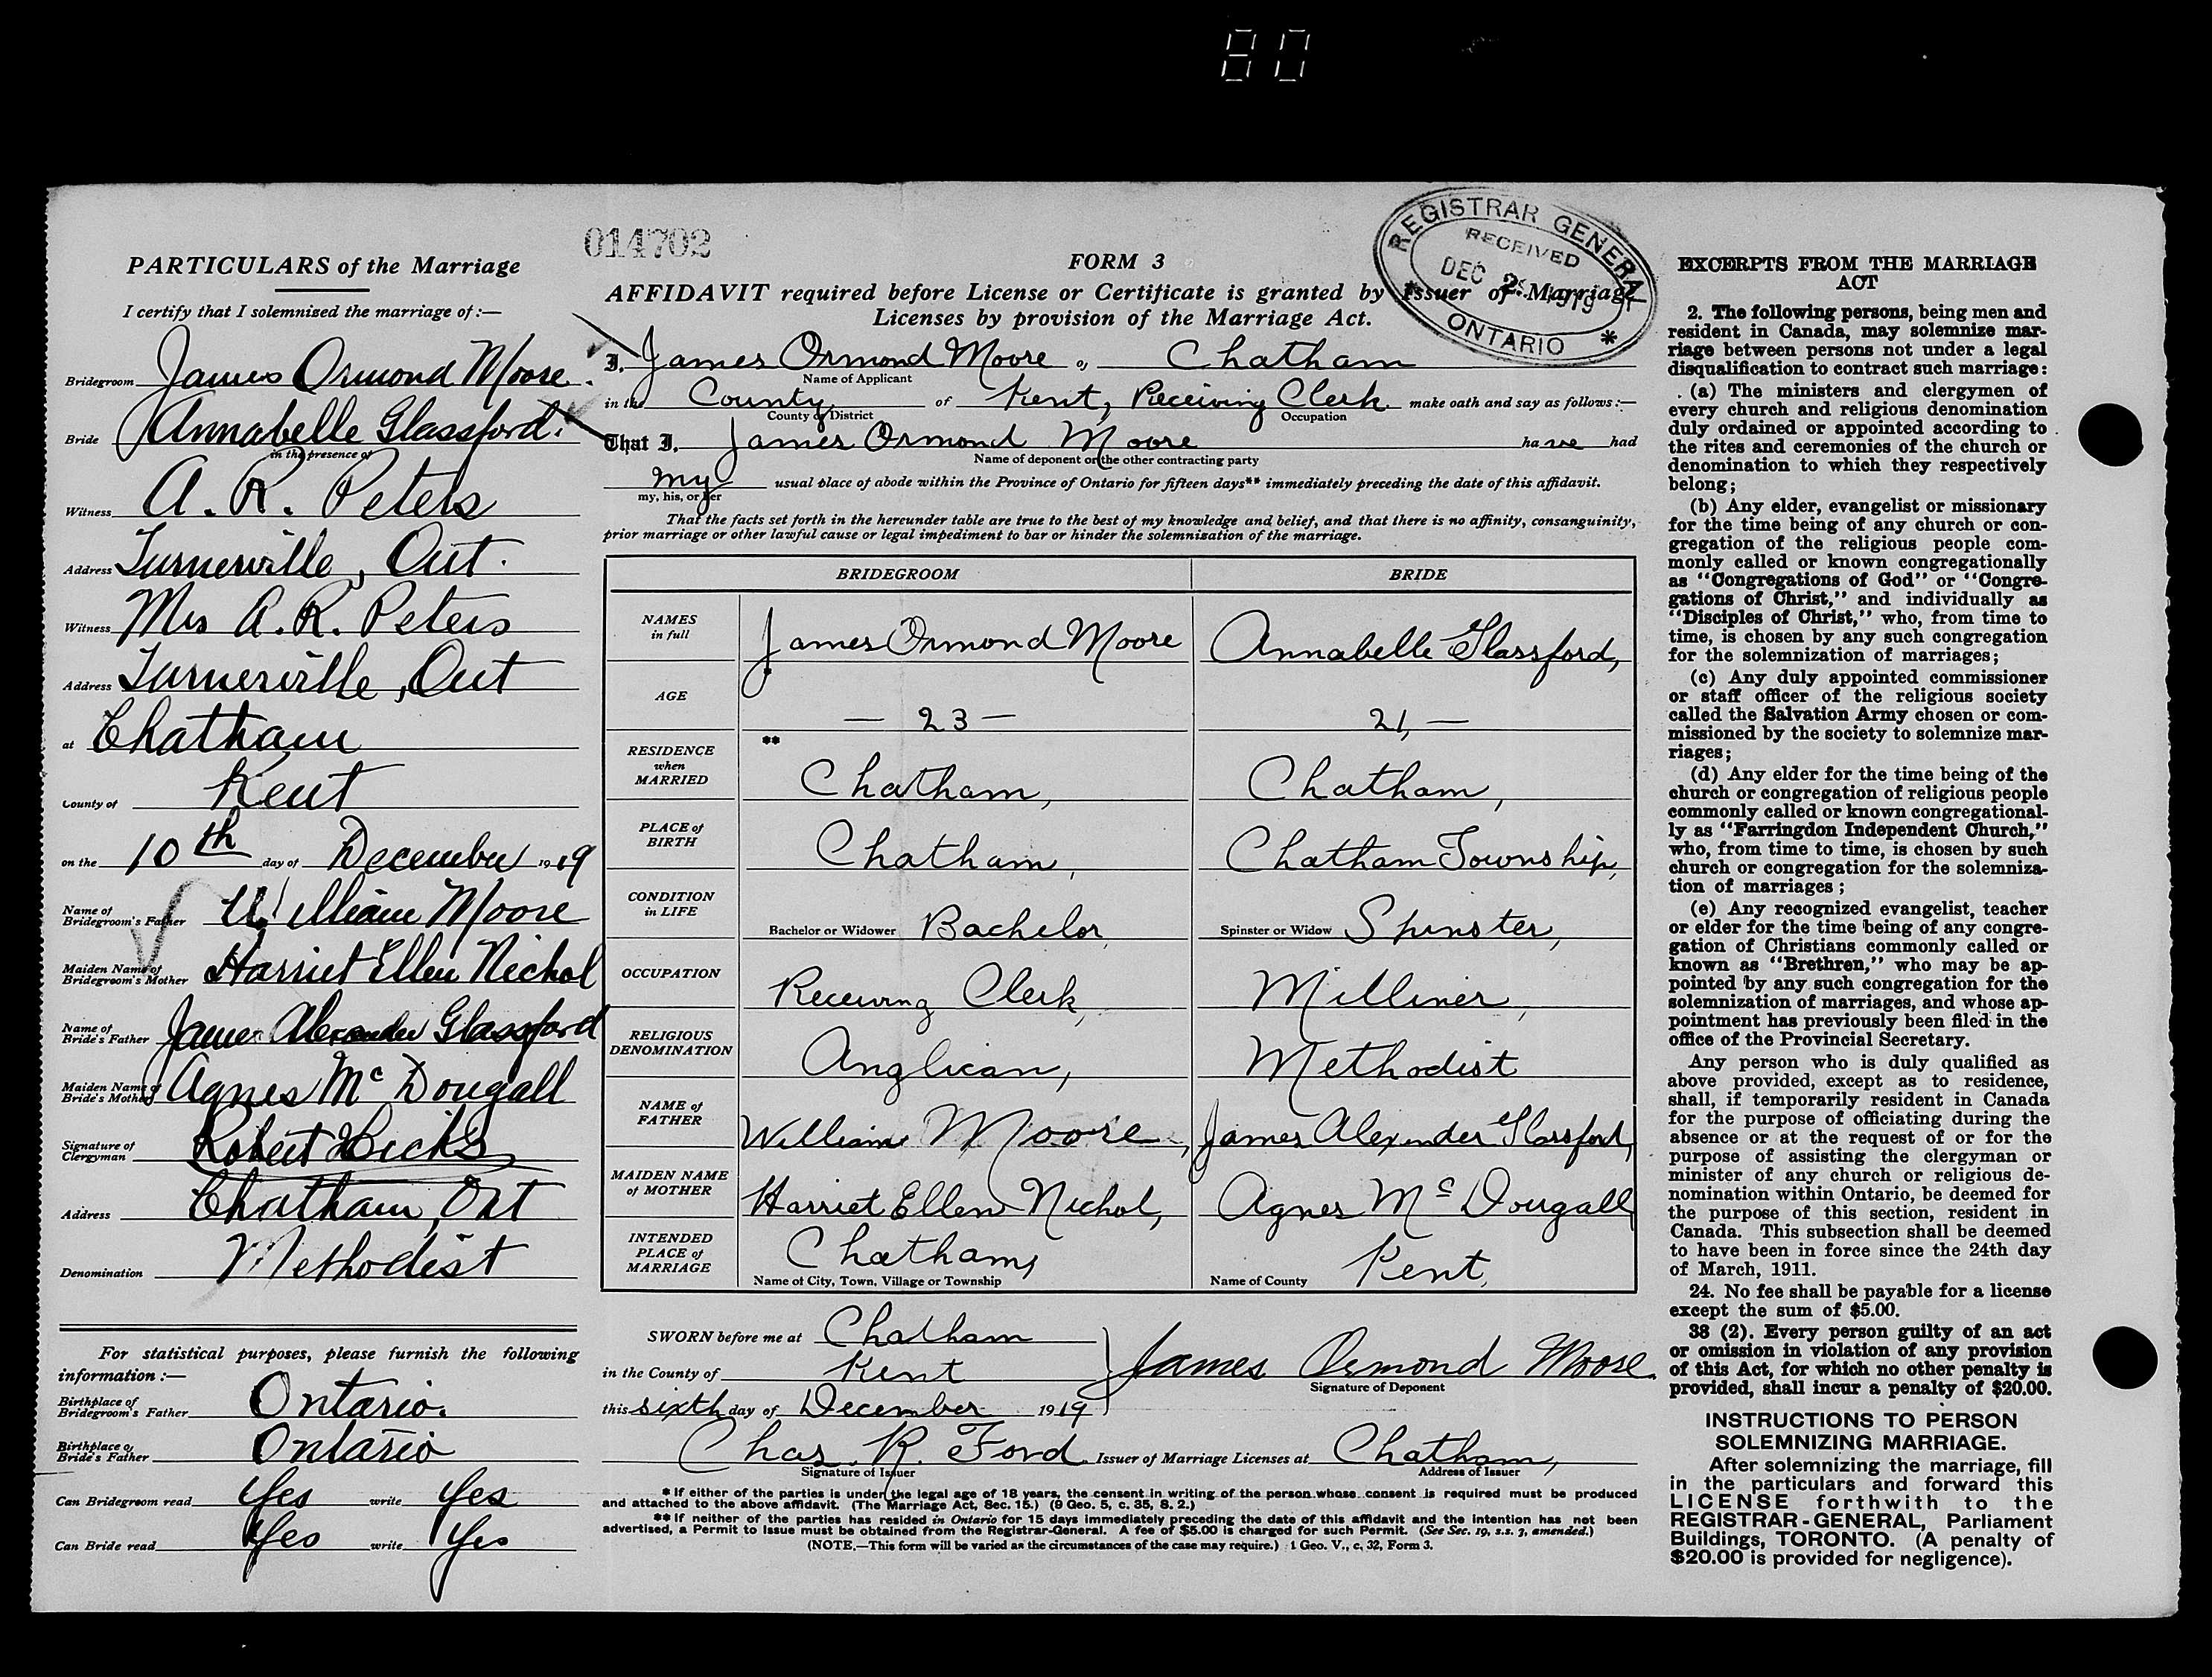 80
014702
REGISTRAR GENERAL
RECEIVED
DEC 1919
ONTARIO
PARTICULARS of the Marriage
I certify that I solemnized the marriage of :—
Bridegroom James Ormond Moore.
Bride Annabelle Glassford.
in the presence of
Witness A. R. Peters
Address Turnerville, Ont.
Witness Mrs A. R. Peters
Address Turnerville, Ont
at Chatham
County of Kent
on the 10th day of December 1919
Name of
Bridegroom's Father William Moore
Maiden Name of
Bridegroom's Mother Harriet Ellen Nichol
Name of
Bride's Father James Alexander Glassford
Maiden Name of
Bride's Mother Agnes Mc Dougall
Signature of
Clergyman Robert Hicks
Address Chatham, Ont
Denomination Methodist
For statistical purposes, please furnish the following
information :—
Birthplace of
Bridegroom's Father Ontario.
Birthplace of
Bride's Father Ontario
Can Bridegroom read Yes write Yes
Can Bride read Yes write Yes
FORM 3
AFFIDAVIT required before License or Certificate is granted by Issuer of Marriage
Licenses by provision of the Marriage Act.
I, James Ormond Moore of Chatham
Name of Applicant
in the County of Kent, Receiving Clerk make oath and say as follows :—
County or District Occupation
That I, James Ormond Moore have had
Name of deponent or the other contracting party
my usual place of abode within the Province of Ontario for fifteen days** immediately preceding the date of this affidavit.
my, his, or her
That the facts set forth in the hereunder table are true to the best of my knowledge and belief, and that there is no affinity, consanguinity,
prior marriage or other lawful cause or legal impediment to bar or hinder the solemnization of the marriage.
BRIDEGROOM BRIDE
NAMES
in full James Ormond Moore Annabelle Glassford,
AGE — 23 — 21, —
**
RESIDENCE
when
MARRIED Chatham, Chatham,
PLACE of
BIRTH Chatham, Chatham Township,
CONDITION
in LIFE Bachelor or Widower Bachelor, Spinster or Widow Spinster,
OCCUPATION Receiving Clerk, Milliner,
RELIGIOUS
DENOMINATION Anglican, Methodist
NAME of
FATHER William Moore, James Alexander Glassford,
MAIDEN NAME
of MOTHER Harriet Ellen Nichol, Agnes Mc Dougall
INTENDED
PLACE of
MARRIAGE Chatham, Kent,
Name of City, Town, Village or Township Name of County
SWORN before me at Chatham
in the County of Kent James Ormond Moore.
Signature of Deponent
this sixth day of December 1919
Chas. R. Ford Issuer of Marriage Licenses at Chatham,
Signature of Issuer Address of Issuer
* If either of the parties is under the legal age of 18 years, the consent in writing of the person whose consent is required must be produced
and attached to the above affidavit. (The Marriage Act, Sec. 15.) (9 Geo. 5, c. 35, S. 2.)
** If neither of the parties has resided in Ontario for 15 days immediately preceding the date of this affidavit and the intention has not been
advertised, a Permit to Issue must be obtained from the Registrar-General. A fee of $5.00 is charged for such Permit. (See Sec. 19, s.s. 3, amended.)
(NOTE.—This form will be varied as the circumstances of the case may require.) 1 Geo. V., c. 32, Form 3.
EXCERPTS FROM THE MARRIAGE
ACT
2. The following persons, being men and
resident in Canada, may solemnize mar-
riage between persons not under a legal
disqualification to contract such marriage:
(a) The ministers and clergymen of
every church and religious denomination
duly ordained or appointed according to
the rites and ceremonies of the church or
denomination to which they respectively
belong;
(b) Any elder, evangelist or missionary
for the time being of any church or con-
gregation of the religious people com-
monly called or known congregationally
as "Congregations of God" or "Congre-
gations of Christ," and individually as
"Disciples of Christ," who, from time to
time, is chosen by any such congregation
for the solemnization of marriages;
(c) Any duly appointed commissioner
or staff officer of the religious society
called the Salvation Army chosen or com-
missioned by the society to solemnize mar-
riages;
(d) Any elder for the time being of the
church or congregation of religious people
commonly called or known congregational-
ly as "Farringdon Independent Church,"
who, from time to time, is chosen by such
church or congregation for the solemniza-
tion of marriages;
(e) Any recognized evangelist, teacher
or elder for the time being of any congre-
gation of Christians commonly called or
known as "Brethren," who may be ap-
pointed by any such congregation for the
solemnization of marriages, and whose ap-
pointment has previously been filed in the
office of the Provincial Secretary.
Any person who is duly qualified as
above provided, except as to residence,
shall, if temporarily resident in Canada
for the purpose of officiating during the
absence or at the request of or for the
purpose of assisting the clergyman or
minister of any church or religious de-
nomination within Ontario, be deemed for
the purpose of this section, resident in
Canada. This subsection shall be deemed
to have been in force since the 24th day
of March, 1911.
24. No fee shall be payable for a license
except the sum of $5.00.
38 (2). Every person guilty of an act
or omission in violation of any provision
of this Act, for which no other penalty is
provided, shall incur a penalty of $20.00.
INSTRUCTIONS TO PERSON
SOLEMNIZING MARRIAGE.
After solemnizing the marriage, fill
in the particulars and forward this
LICENSE forthwith to the
REGISTRAR-GENERAL, Parliament
Buildings, TORONTO. (A penalty of
$20.00 is provided for negligence).